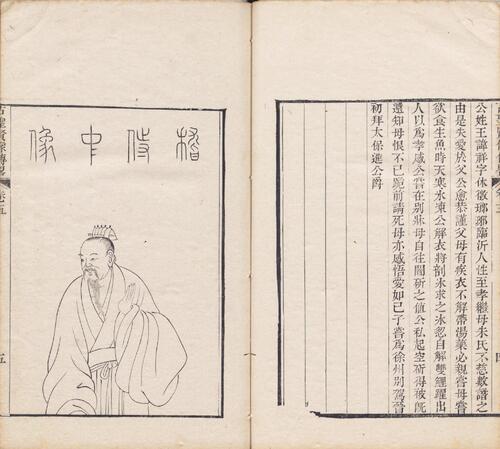 公姓王諱祥字休徵瑯邪臨沂人性至孝繼母朱氏不慈數譖之
由是失愛於父公愈恭謹父母有疾衣不解帶湯藥必親嘗母嘗
欲食生魚時天寒冰凍公解衣將剖冰求之冰忽自解雙鯉躍出
人以為孝感公嘗在別牀母自往闇斫之值公私起空斫得被旣
還知母恨不已跪前請死母亦感悟愛如己子嘗為徐州別駕晉
初拜太保進公爵
嵇侍中像
古聖賢像傳畧
卷五
五